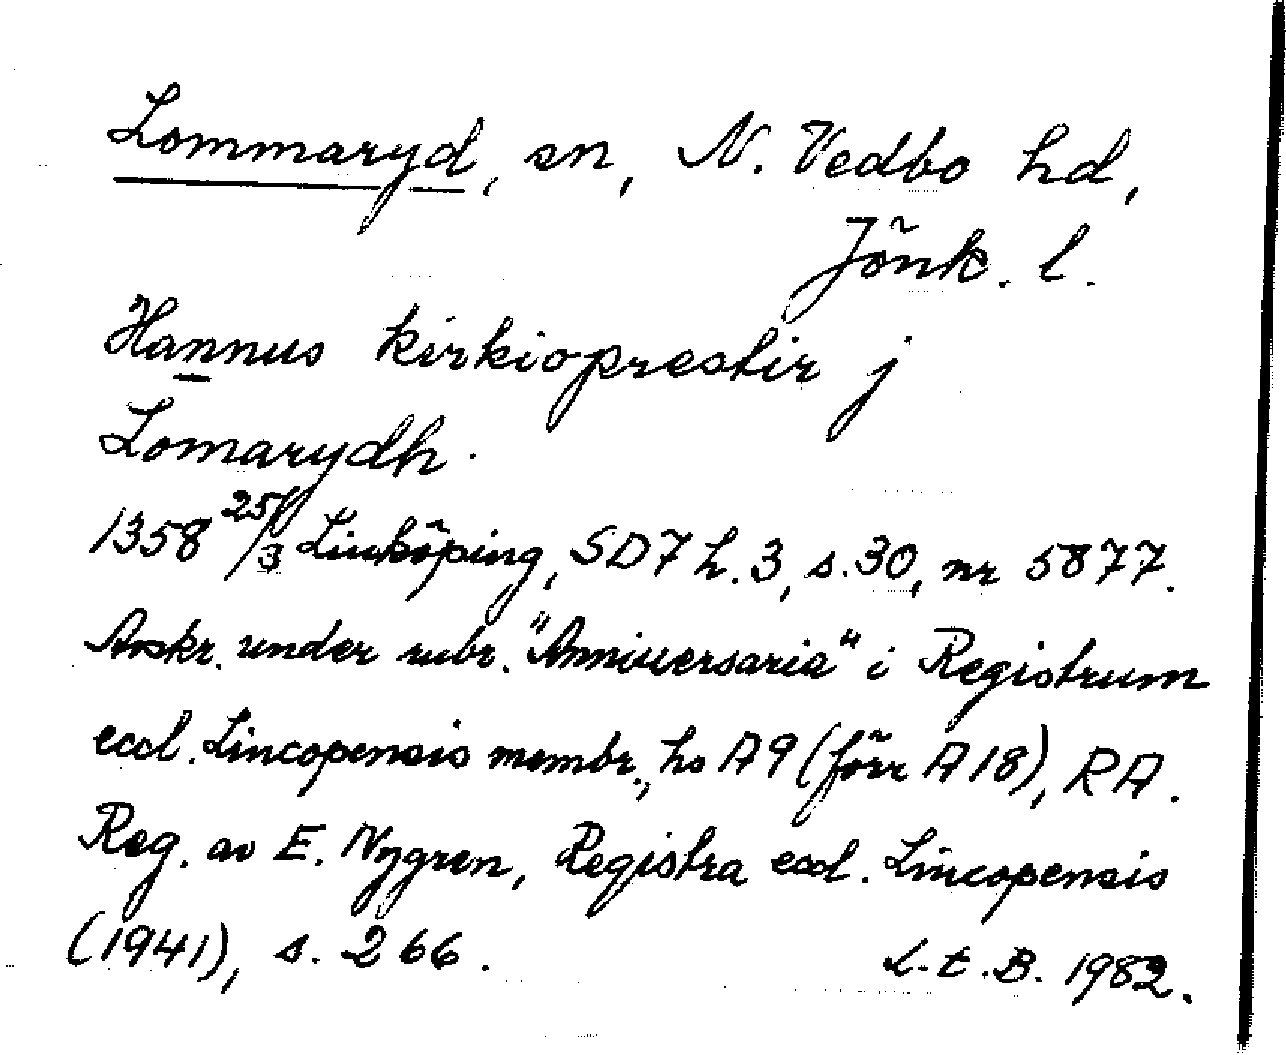 Lommaryd, sn, N. Vedbo hd,
Jönk. l.
Hannus kirkioprestir j
Lomarydh.
1358 25/3 Linköping, SD7 h.3, s.30, nr 5877.
Avskr. under rubr. "Anniuersaria" i Registrum
eccl. Lincopensis membr., hs A9 (förr A18), RA.
Reg. av E. Nygren, Registra eccl. Lincopensis
(1941), s. 266.
L.t.B. 1982.